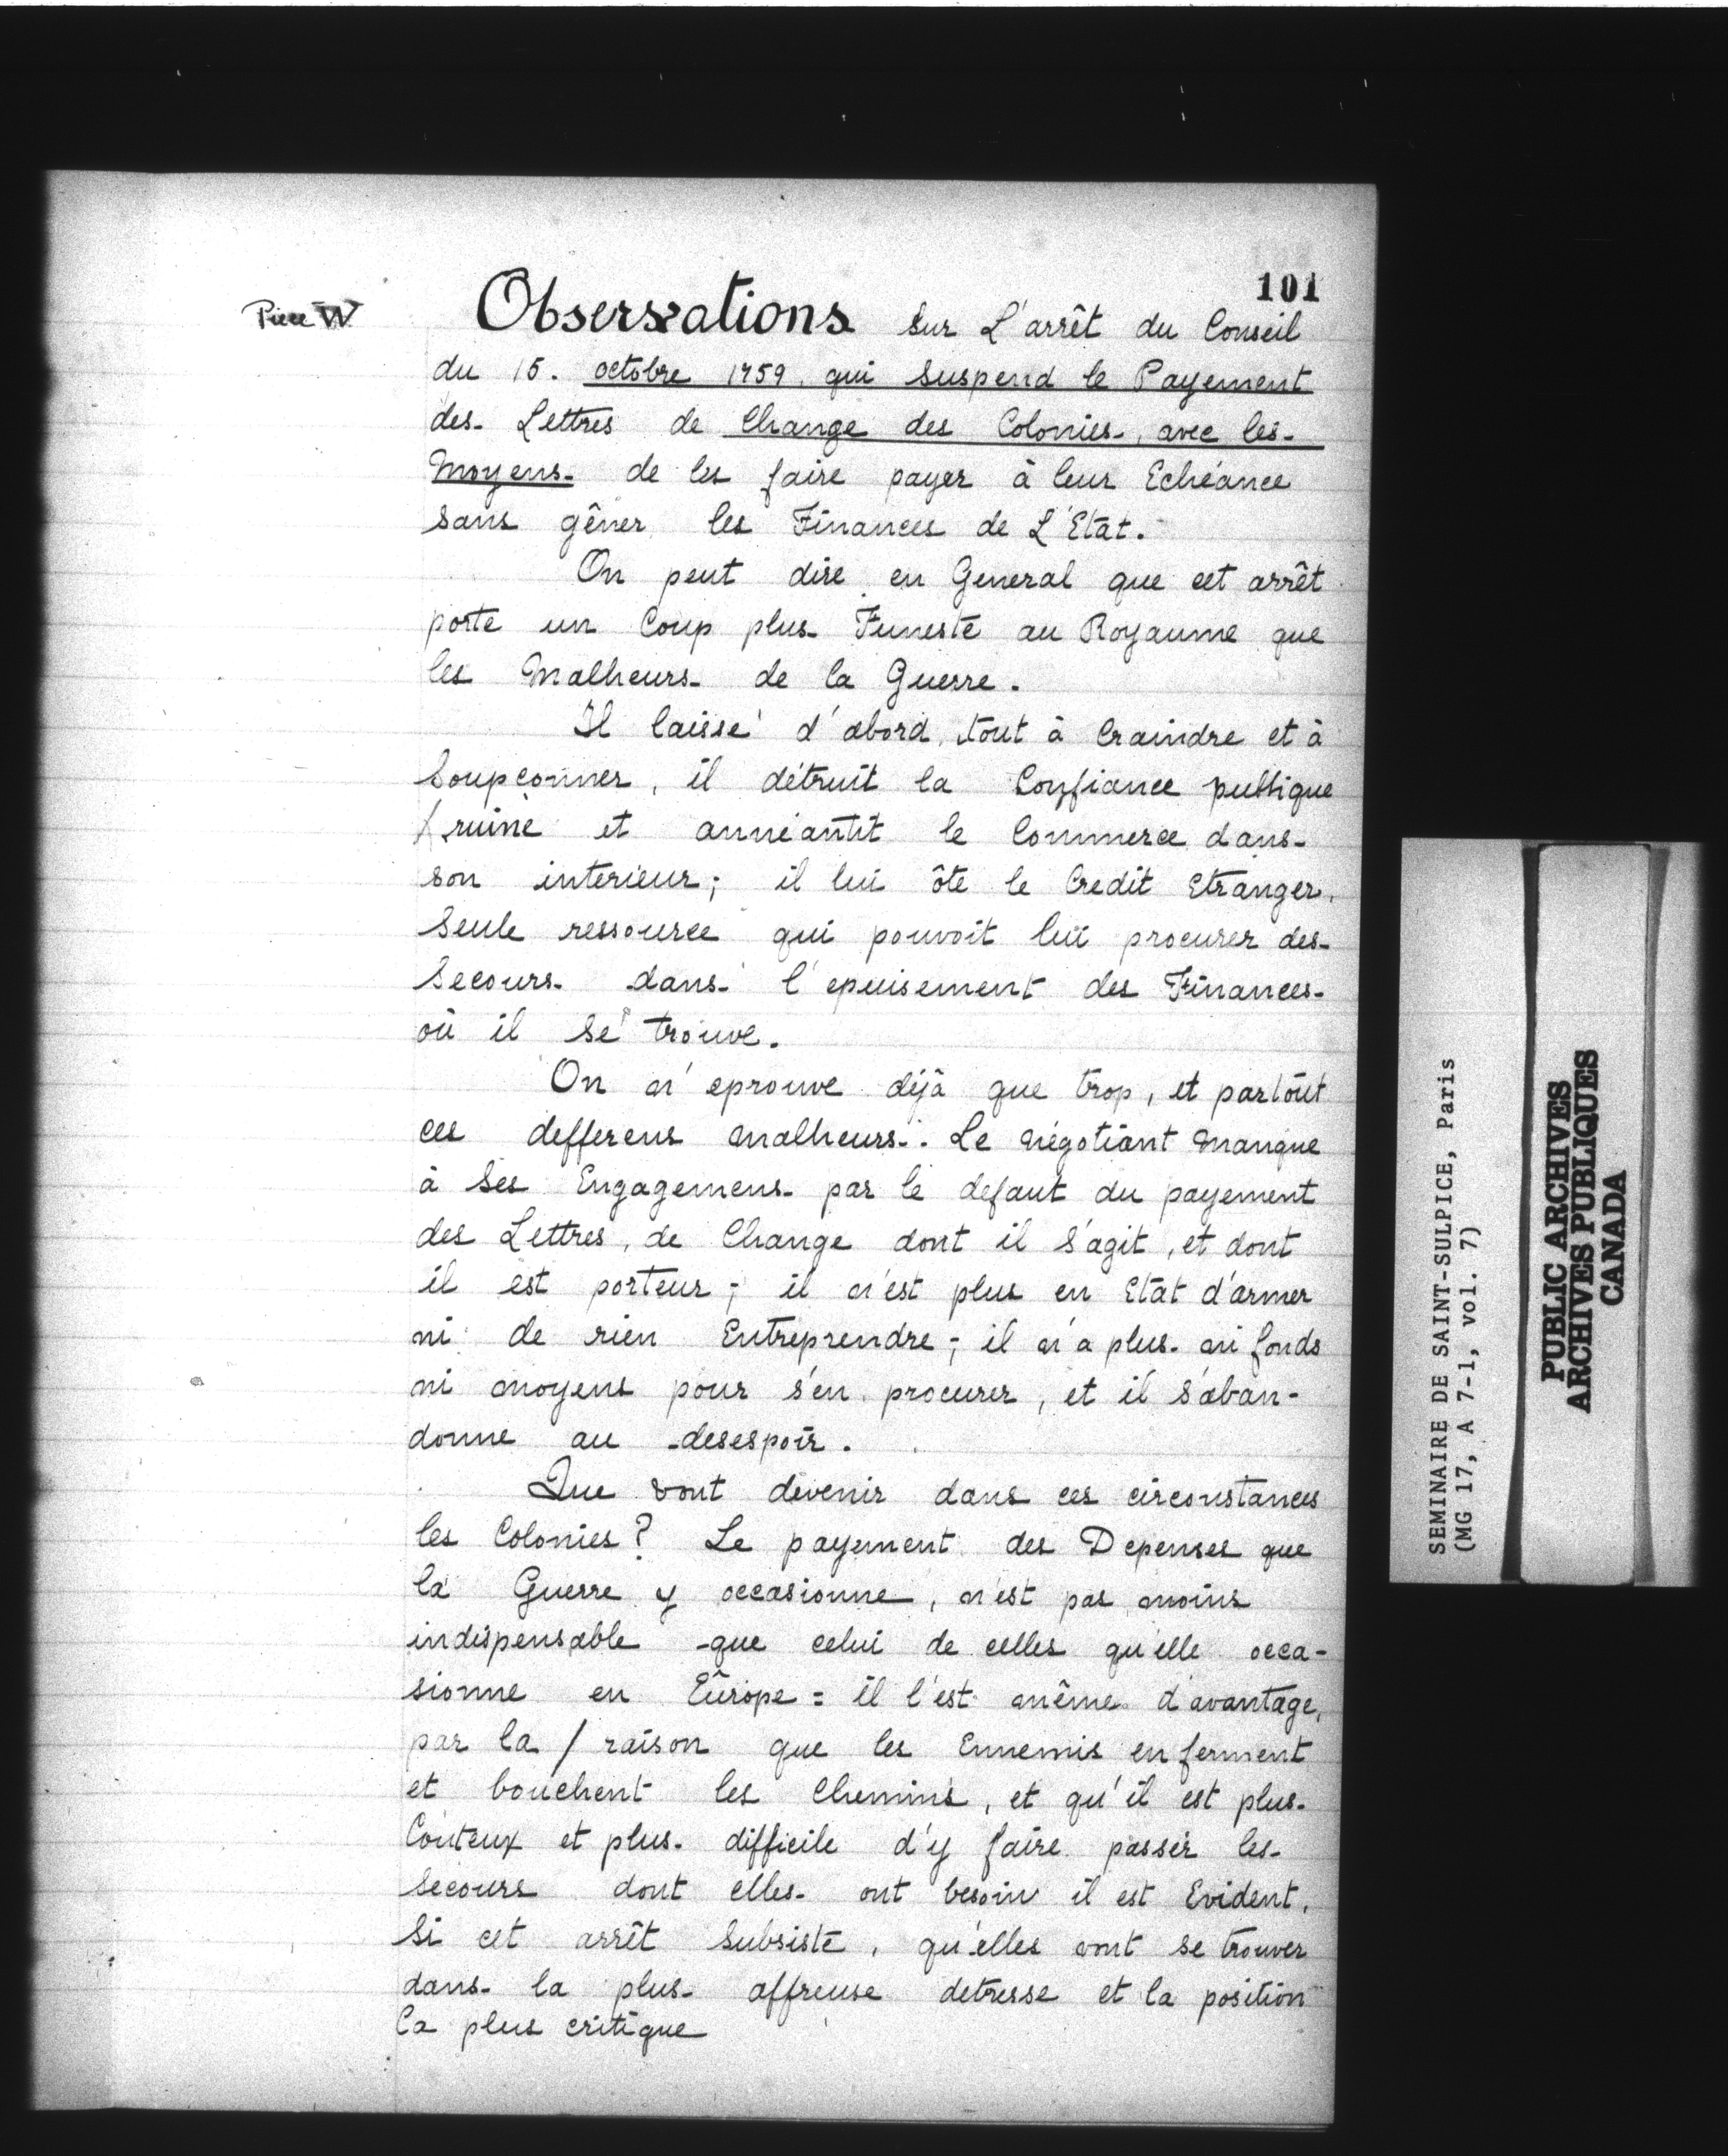 101
Piece W
Observations Sur L'arrêt du Conseil
du 15. octobre 1759, qui Suspend le Payement
des Lettres de Change des Colonies, avec les
Moyens de les faire payer à leur Echéance
Sans gêner les Finances de L'Etat.
On peut dire en General que cet arrêt
porte un Coup plus Funeste au Royaume que
les Malheurs de la Guerre.
Il laisse d'abord tout à Craindre et à
Soupçonner, il détruit la Confiance publique
/ ruine et annéantit le Commerce dans
son interieur; il lui ôte le Credit Etranger,
Seule ressource qui pouvoit lui procurer des
Secours dans l'epuisement des Finances
où il Se trouve.
On n'eprouve déjà que trop, et partout
ces differens malheurs. Le négotiant manque
à Ses Engagemens par le defaut du payement
des Lettres, de Change dont il S'agit, et dont
il est porteur; il n'est plus en Etat d'armer
ni de rien Entreprendre; il n'a plus ni fonds
ni moyens pour s'en procurer, et il s'aban-
donne au desespoir.
Que vont devenir dans ces circonstances
les Colonies? Le payement des Depenses que
la Guerre y occasionne, n'est pas moins
indispensable que celui de celles qu'elle occa-
sionne en Europe = il l'est même d'avantage,
par la / raison que les Ennemis en ferment
et bouchent les Chemins, et qu'il est plus
Couteux et plus difficile d'y faire passer les
Secours dont elles ont besoin il est Evident,
Si cet arrêt Subsiste, qu'elles vont se trouver
dans la plus affreuse detresse et la position
la plus critique
SEMINAIRE DE SAINT-SULPICE, Paris
(MG 17, A 7-1, vol. 7)
PUBLIC ARCHIVES
ARCHIVES PUBLIQUES
CANADA